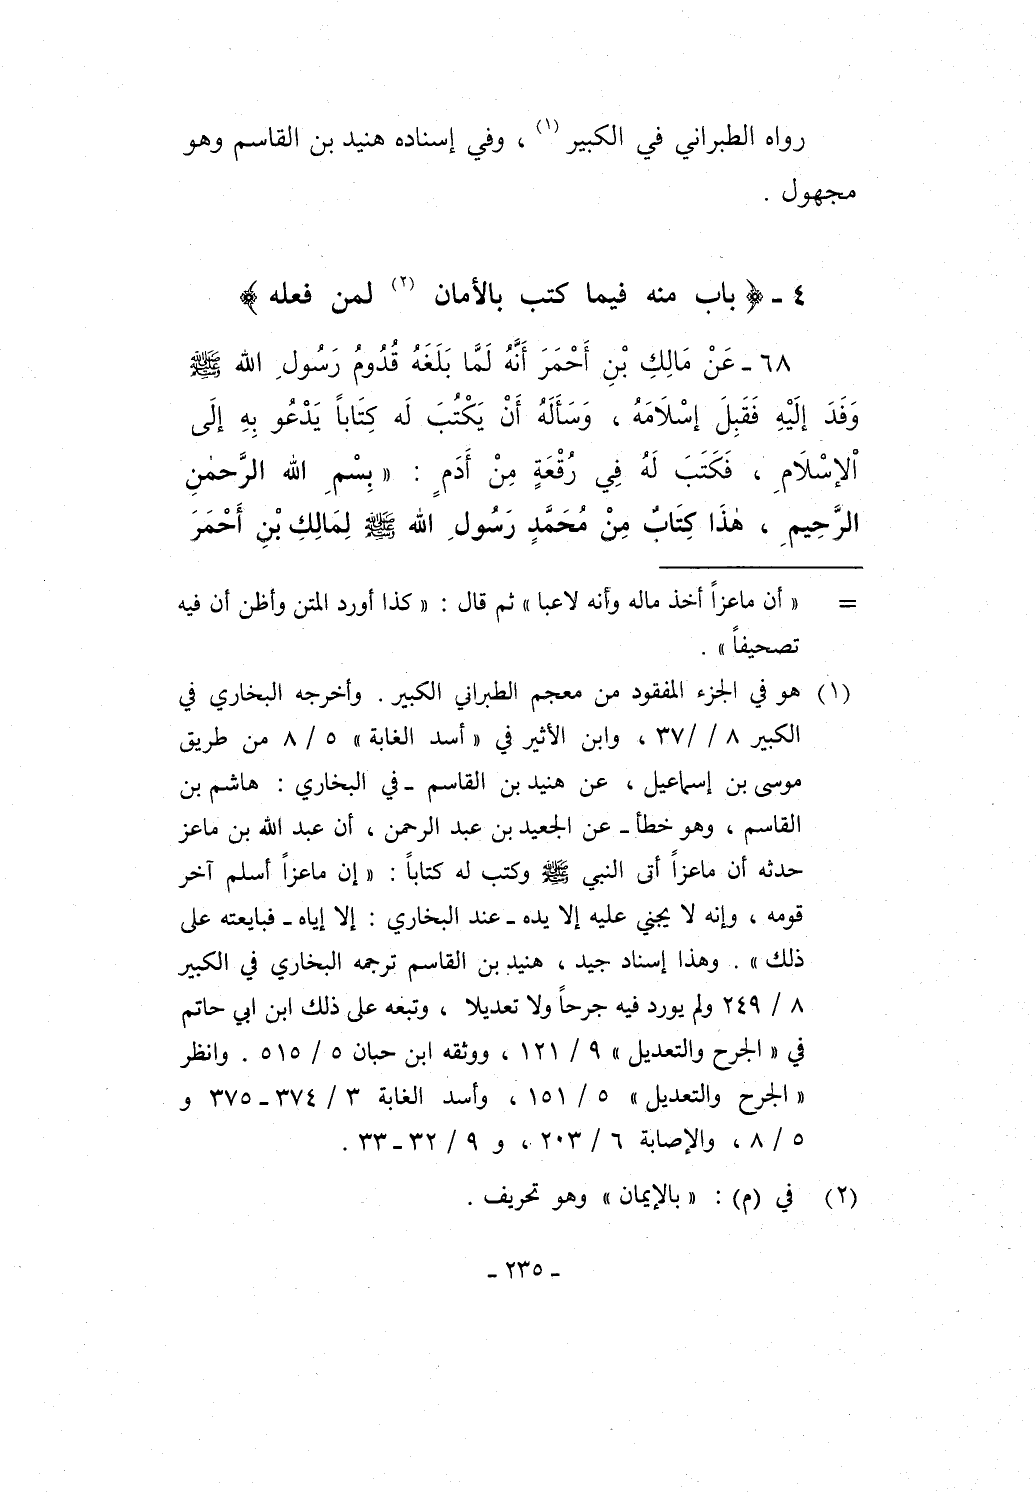 رواه الطبراني في الكبير (١) ، وفي إسناده هنيد بن القاسم وهو
مجهول .
٤ ـ ﴿ باب منه فيما كتب بالأمان (٢) لمن فعله ﴾
٦٨ ـ عَنْ مَالِكِ بْنِ أَحْمَرَ أَنَّهُ لَمَّا بَلَغَهُ قُدُومُ رَسُولِ الله ﷺ
وَفَدَ إِلَيْهِ فَقَبِلَ إِسْلَامَهُ ، وَسَأَلَهُ أَنْ يَكْتُبَ لَه كِتَاباً يَدْعُو بِهِ إِلَى
اْلإِسْلَامِ ، فَكَتَبَ لَهُ فِي رُقْعَةٍ مِنْ أَدَمٍ : « بِسْمِ الله الرَّحمٰنِ
الرَّحِيمِ ، هٰذَا كِتَابٌ مِنْ مُحَمَّدٍ رَسُولِ الله ﷺ لِمَالِكِ بْنِ أَحْمَرَ
= « أن ماعزاً أخذ ماله وأنه لاعبا » ثم قال : « كذا أورد المتن وأظن أن فيه
تصحيفاً » .
(١) هو في الجزء المفقود من معجم الطبراني الكبير . وأخرجه البخاري في
الكبير ٨ / /٣٧ ، وابن الأثير في « أسد الغابة » ٥ / ٨ من طريق
موسى بن إسماعيل ، عن هنيد بن القاسم ـ في البخاري : هاشم بن
القاسم ، وهو خطأ ـ عن الجعيد بن عبد الرحمن ، أن عبد الله بن ماعز
حدثه أن ماعزاً أتى النبي ﷺ وكتب له كتاباً : « إن ماعزاً أسلم آخر
قومه ، وإنه لا يجني عليه إلا يده ـ عند البخاري : إلا إياه ـ فبايعته على
ذلك » . وهذا إسناد جيد ، هنيد بن القاسم ترجمه البخاري في الكبير
٨ / ٢٤٩ ولم يورد فيه جرحاً ولا تعديلا ، وتبعه على ذلك ابن ابي حاتم
في « الجرح والتعديل » ٩ / ١٢١ ، ووثقه ابن حبان ٥ / ٥١٥ . وانظر
« الجرح والتعديل » ٥ / ١٥١ ، وأسد الغابة ٣ / ٣٧٤ ـ ٣٧٥ و
٥ / ٨ ، والإصابة ٦ / ٢٠٣ ، و ٩ / ٣٢ ـ ٣٣ .
(٢) في (م) : « بالإيمان » وهو تحريف .
ـ ٢٣٥ ـ